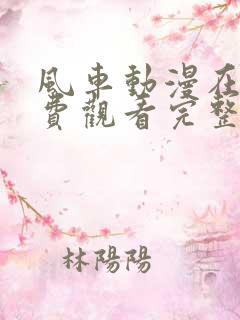 風車動漫在
費觀看完整
林陽陽